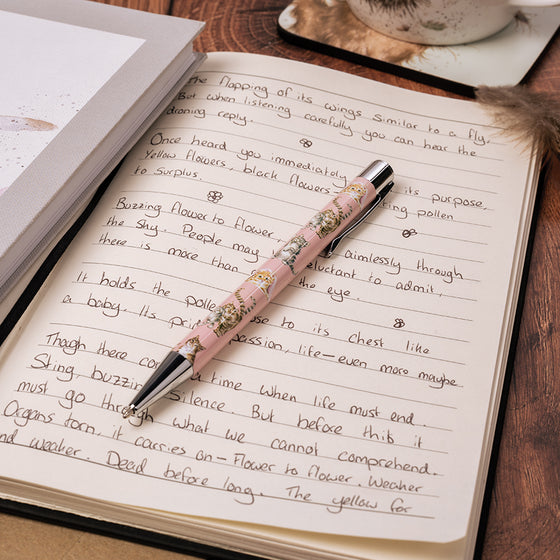 The flapping of its wings similar to a fly,
But when listening carefully you can hear the
droning reply.
Once heard you immediately its purpose
Yellow flowers, black flowers pollen
to surplus.
Buzzing flower to flower, aimlessly through
the sky. People may reluctant to admit,
there is more than the eye.
It holds the pollen to its chest like
a baby. Its passion, life-even more maybe
Though there time when life must end.
Sting buzzing Silence. But before this it
must go through what we cannot comprehend.
Organs torn, it carries on - Flower to flower. Weaker
and weaker. Dead before long. The yellow for